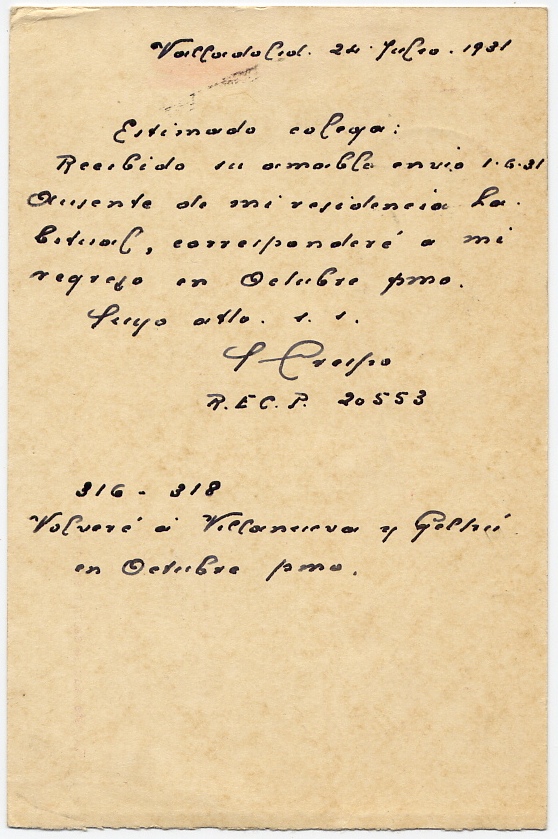 Valladolid. 24. Julio. 1931
Estimado colega:
Recibido su amable envio 1.6.31
Ausente de mi residencia ha.
bitual, corresponderé a mi
regreso en Octubre pmo.
Suyo atto. s. s.
S Crespo
R.E.C.P. 20553
316 - 318
Volveré á Villanueva y Geltrú
en Octubre pmo.